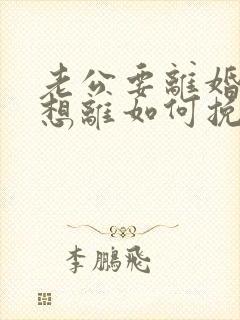 老公要離婚
想離如何挽
李鵬飛